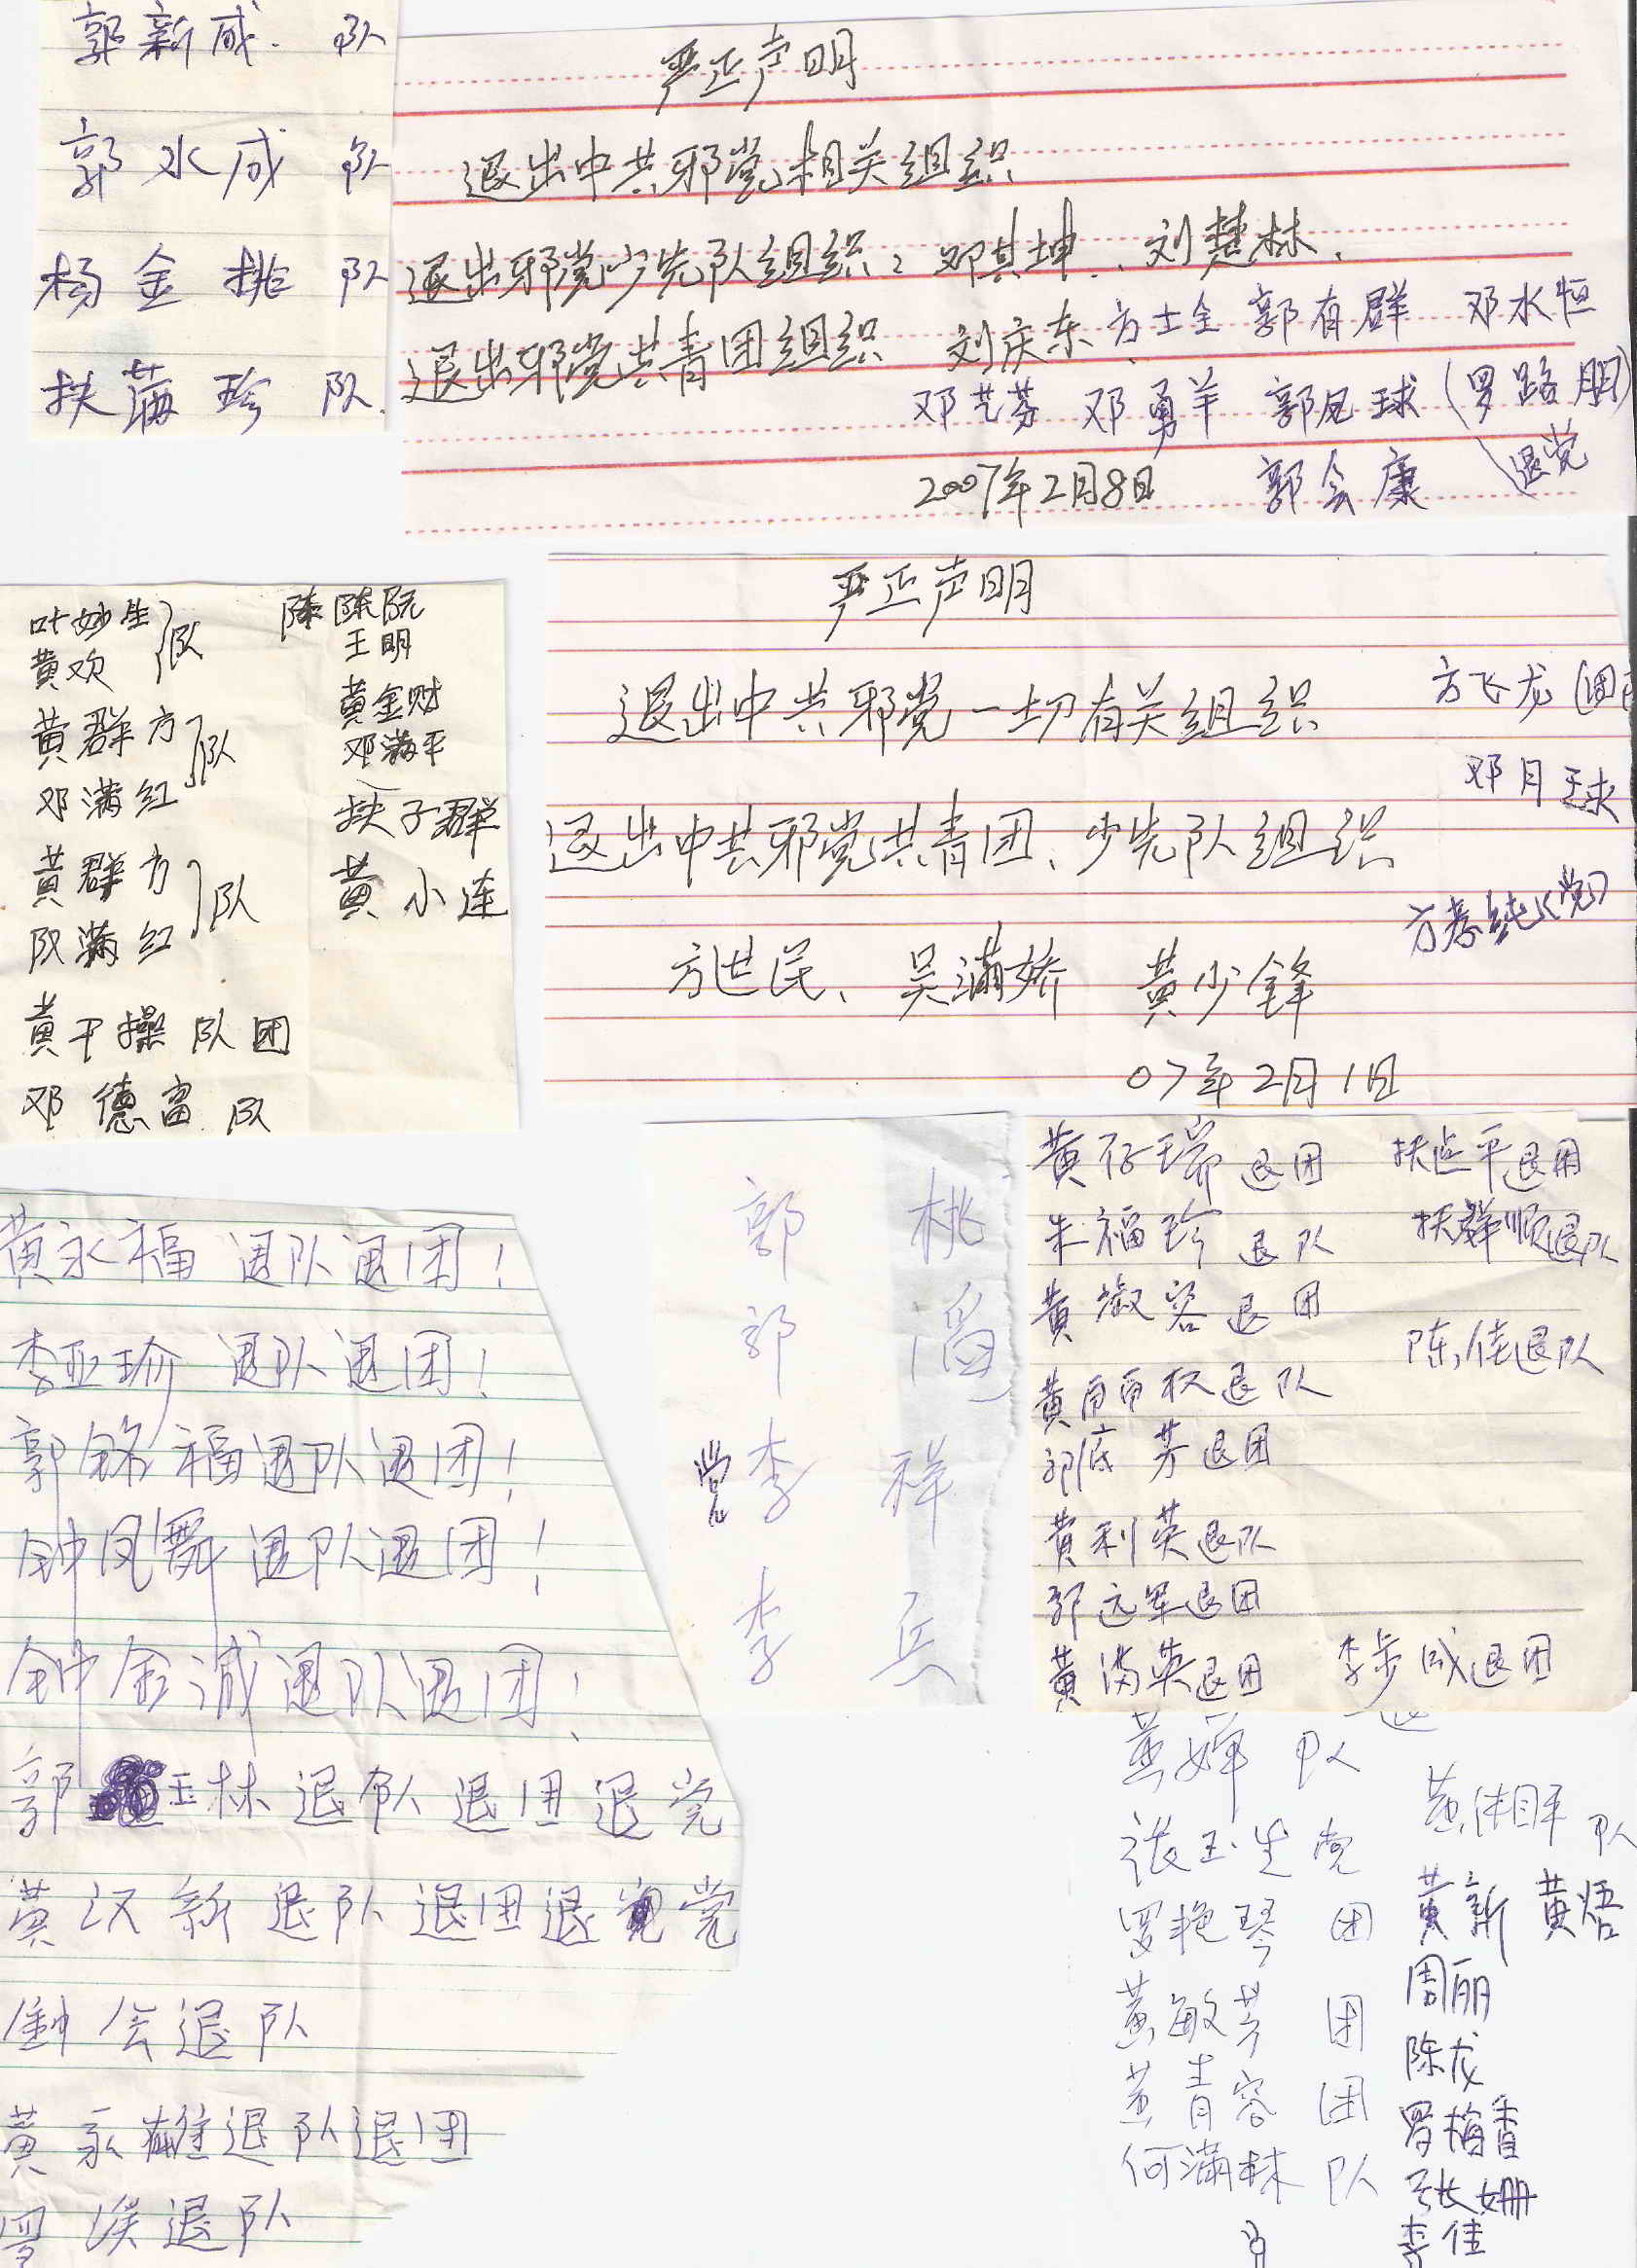 郭新成. 队
郭水成 队
杨金桃 队
扶满珍 队.
严正声明
退出中共邪党相关组织
退出邪党少先队组织: 邓其坤、刘楚林、
退出邪党共青团组织 刘庆东 方士全 郭有群 邓水恒
邓艺芬 邓勇羊 郭凤球 (罗路朋)
2007年2月8日 郭会康 退党
叶妙生
黄欢 队
黄群方
邓满红 队
黄群方
满红 队
黄干操 队团
邓德富 队
陈阮
王明
黄金财
邓满平
扶子群
黄小连
严正声明
退出中共邪党一切有关组织
退出中共邪党共青团、少先队组织
方世民、吴满娇 黄少锋
07年2月1日
方飞龙 (团
邓月球
方春纯(党)
黄永福 退队退团!
李亚瑜 退队退团!
郭铭福退队退团!
钟凤舞退队退团!
钟金诚退队退团!
郭玉林退队退团退党
黄汉新退队退团退党
钟会退队
黄永雄退队退团
罗 退队
郭 桃
郭 滔
党 李 祥
李 兵
黄存瑞 退团
朱福珍 退队
黄淑容 退团
黄 权退队
郭底芳退团
黄利英退队
郭远军退团
黄满英退团
扶 平退团
扶群顺退队
陈佳退队
李步成退团
黄婵 队
张玉生 党
罗艳琴 团
黄敏芳 团
黄青容 团
何满林 队
黄湘平 队
黄新 黄焐
周丽
陈龙
罗梅香
张姗
李佳